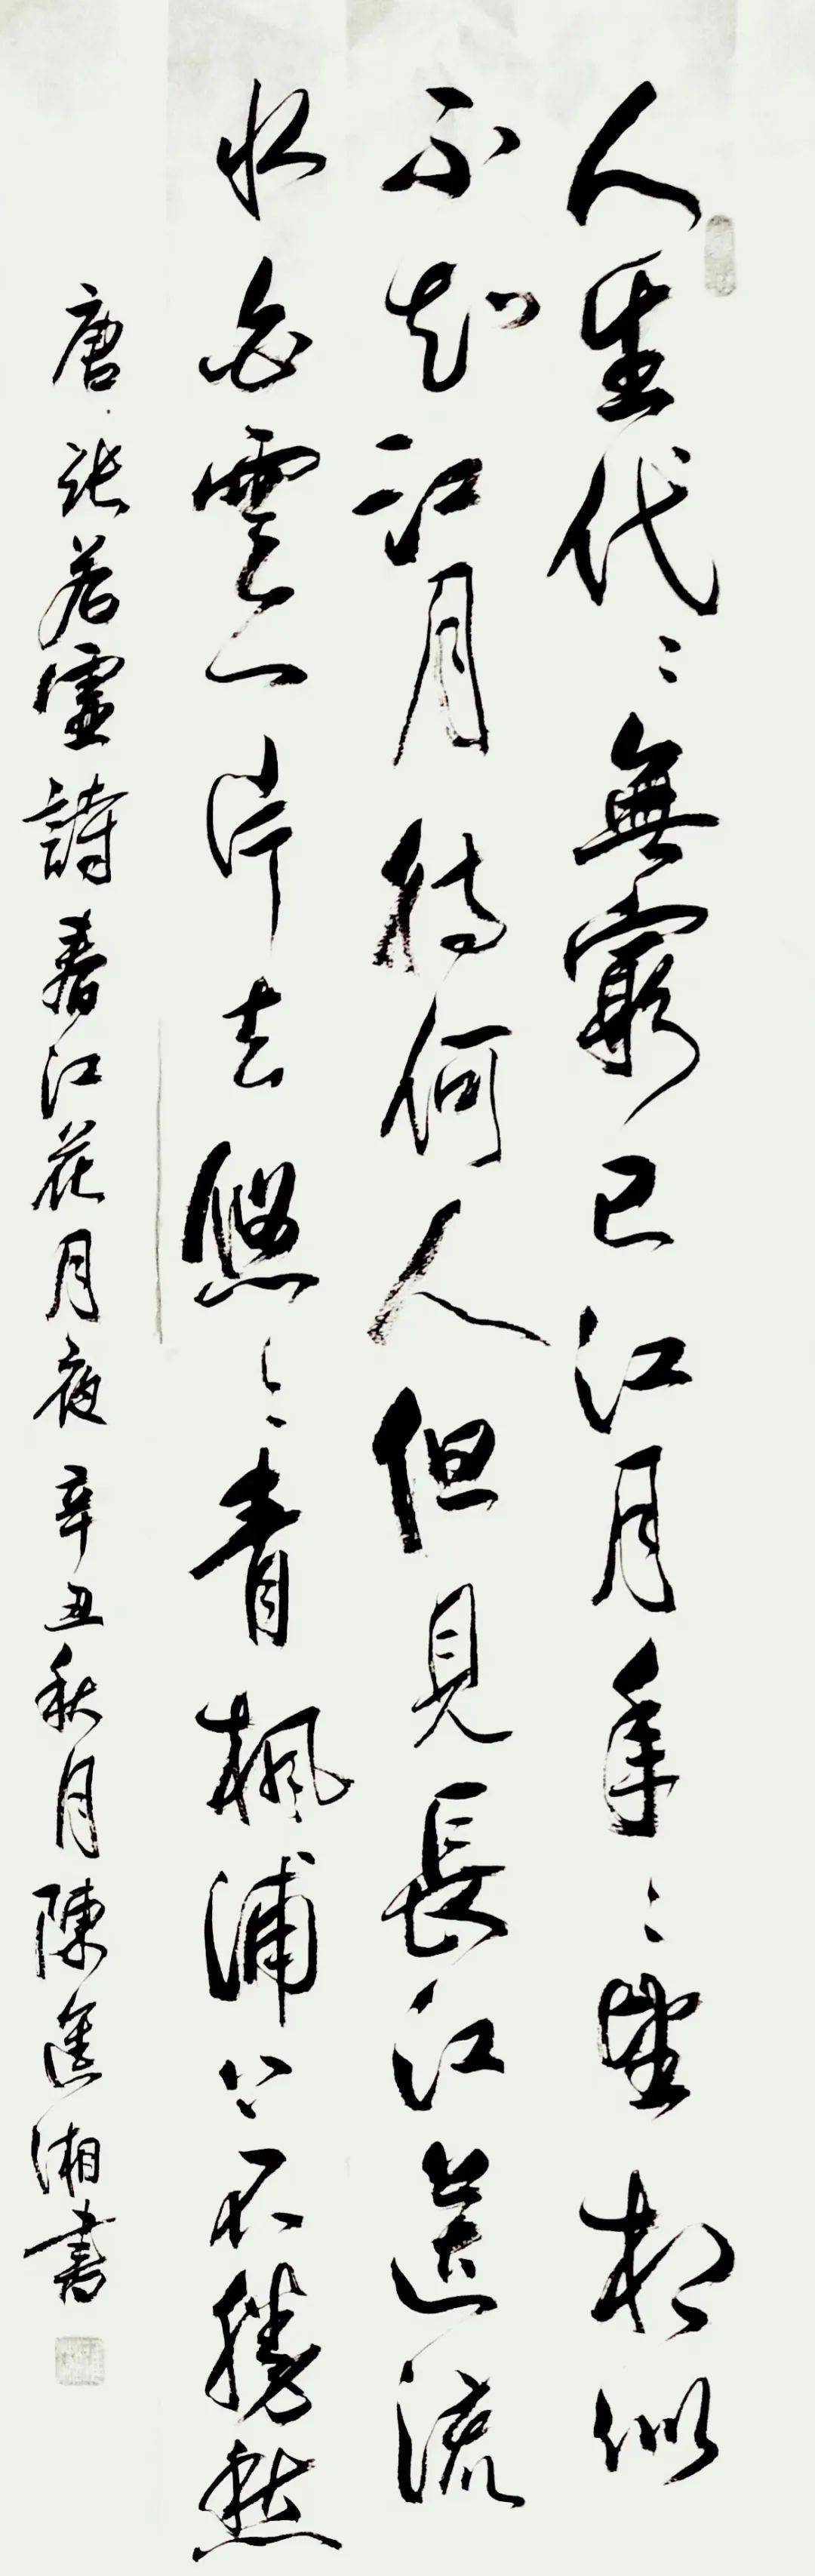 人生代〻無窮已江月年〻望相似
不知江月待何人但見長江送流
水白雲一片去悠〻青楓浦上不勝愁
唐張若虛詩春江花月夜辛丑秋月陳進湘書